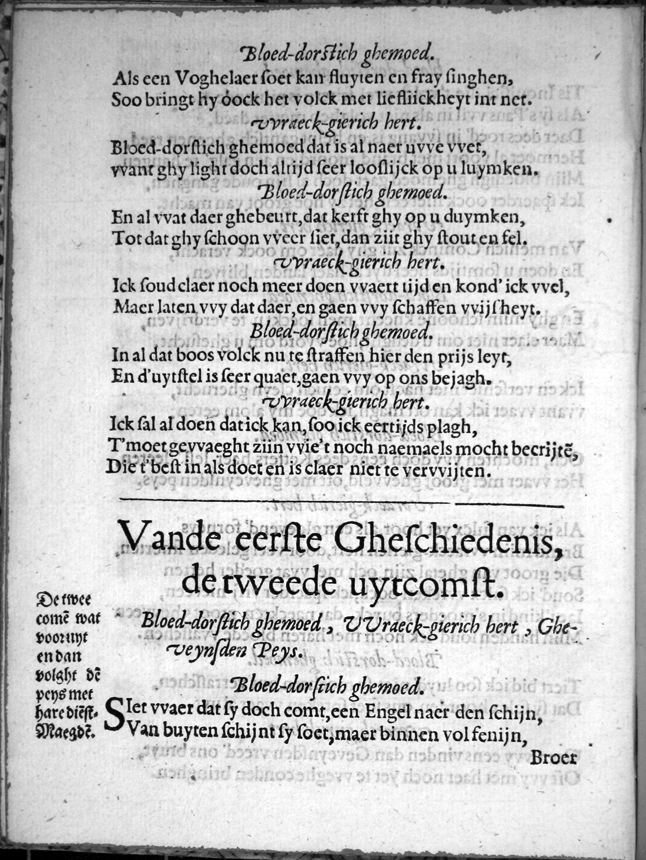 Bloed-dorſtich ghemoed.
Als een Voghelaer ſoet kan fluyten en fray ſinghen,
Soo bringt hy óock het volck met liefliickheyt int net.
VVraeck-gierich hert.
Bloed-dorſtich ghemoed dat is al naer uvve vvet,
vvant ghy light doch altijd ſeer looſlijck op u luymken.
Bloed-dorſtich ghemoed.
En al vvat daer ghebeurt, dat kerft ghy op u duymken,
Tot dat ghy ſchoon vveer ſiet, dan ziit ghy ſtout en fel.
VVraeck-gierich hert.
Ick ſoud claer noch meer doen vvaert tijd en kond' ick vvel,
Maer laten vvy dat daer, en gaen vvy ſchaffen vvijſheyt.
Bloed-dorſtich ghemoed.
In al dat boos volck nu te ſtraffen hier den prijs leyt,
En d'uytſtel is ſeer quaet, gaen vvy op ons bejagh.
VVraeck-gierich hert.
Ick ſal al doen dat ick kan, ſoo ick eertijds plagh,
T'moet gevvaeght ziin vvie't noch naemaels mocht becrijtē,
Die t'beſt in als doet en is claer niet te vervvijten.
Vande eerſte Gheſchiedenis,
de tweede uytcomſt.
Bloed-dorſtich ghemoed, VVraeck-gierich hert, Ghe-
veynſden Peys.
De twee
comē wat
vooruyt
en dan
volght dē
peys met
hare diēſt-
Maegdē.
Bloed-dorſtich ghemoed.
SIet vvaer dat ſy doch comt, een Engel naer den ſchijn,
Van buyten ſchijnt ſy ſoet, maer binnen vol fenijn,
Broer